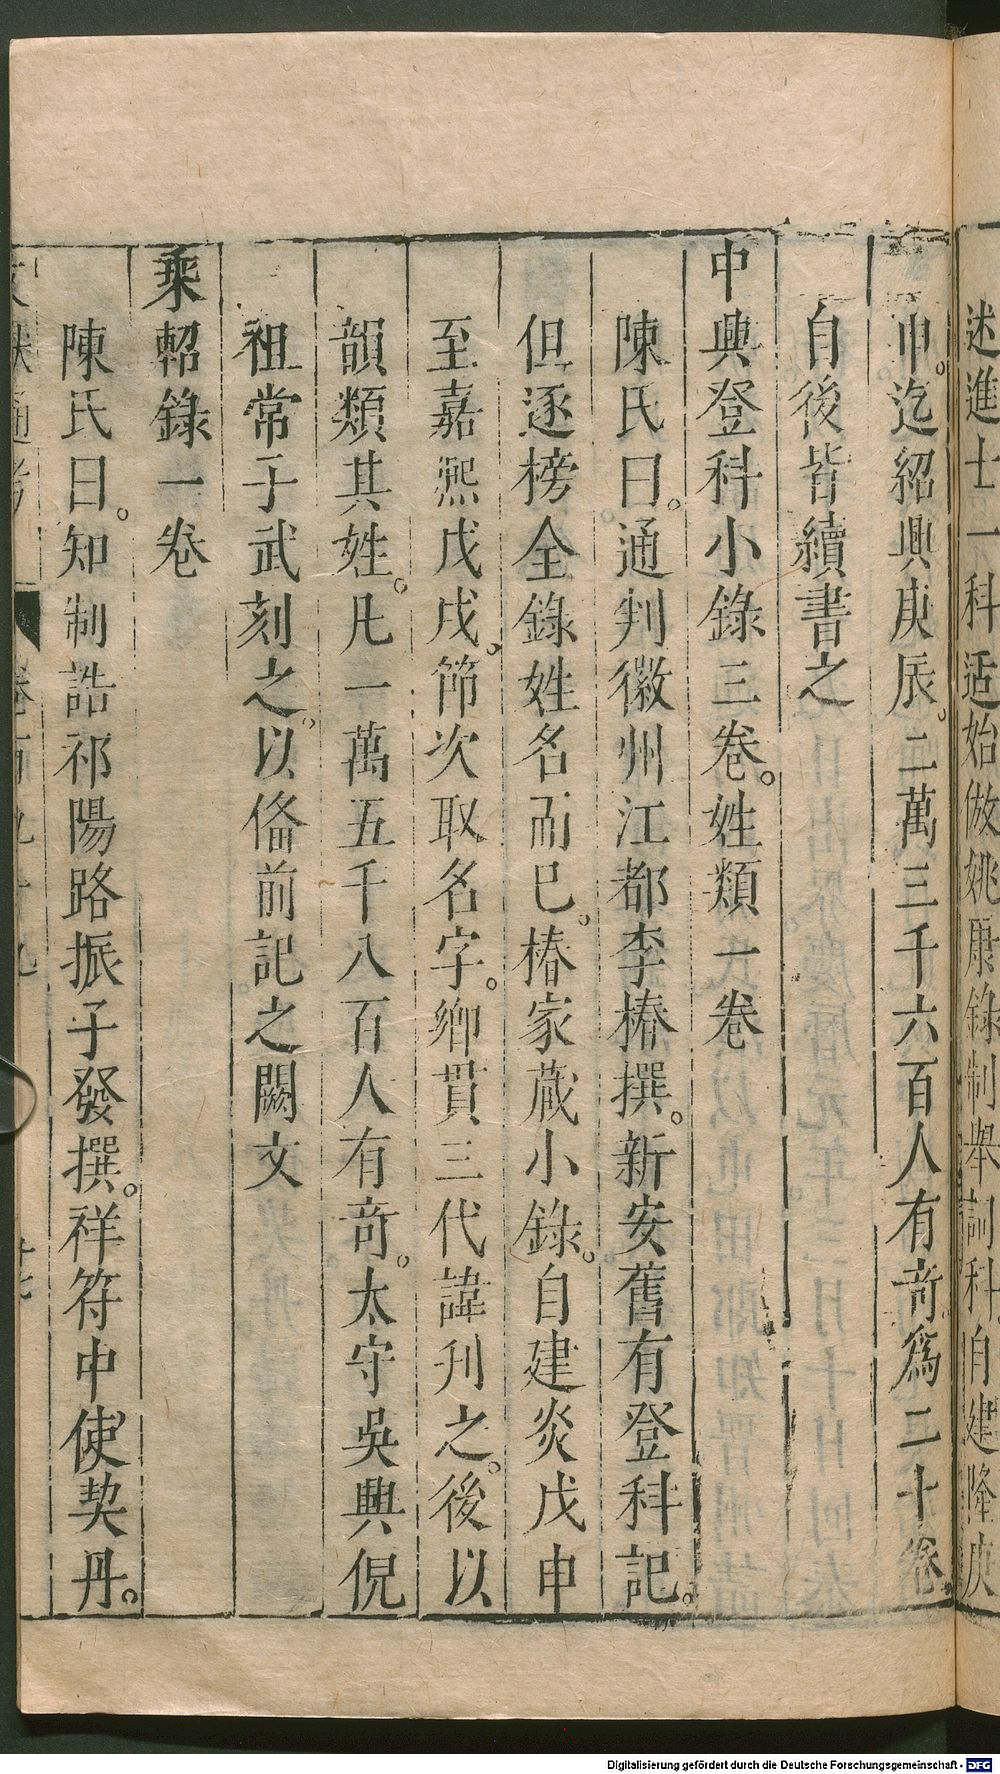 述進士一科适始倣姚康錄制舉詞科自建隆庚
申。迄紹興庚辰。二萬三千六百人有奇爲二十卷
自後皆續書之
中興登科小錄三卷。姓類一卷
陳氏曰。通判徽州江都李椿撰。新安舊有登科記。
但逐榜全錄姓名而已。椿家蔵小錄。自建炎戊申
至嘉熙戊戌。節次取名字。鄉貫三代諱刋之。後以
韻類其姓。凡一萬五千八百人有奇。太守吳興倪
祖常子武刻之。以俻前記之闕文
乘軺錄一卷
陳氏曰。知制誥祁陽路振子發撰。祥符中使契丹。
文獻通考 卷百九十九
Digitalisierung gefördert durch die Deutsche Forschungsgemeinschaft - DFG